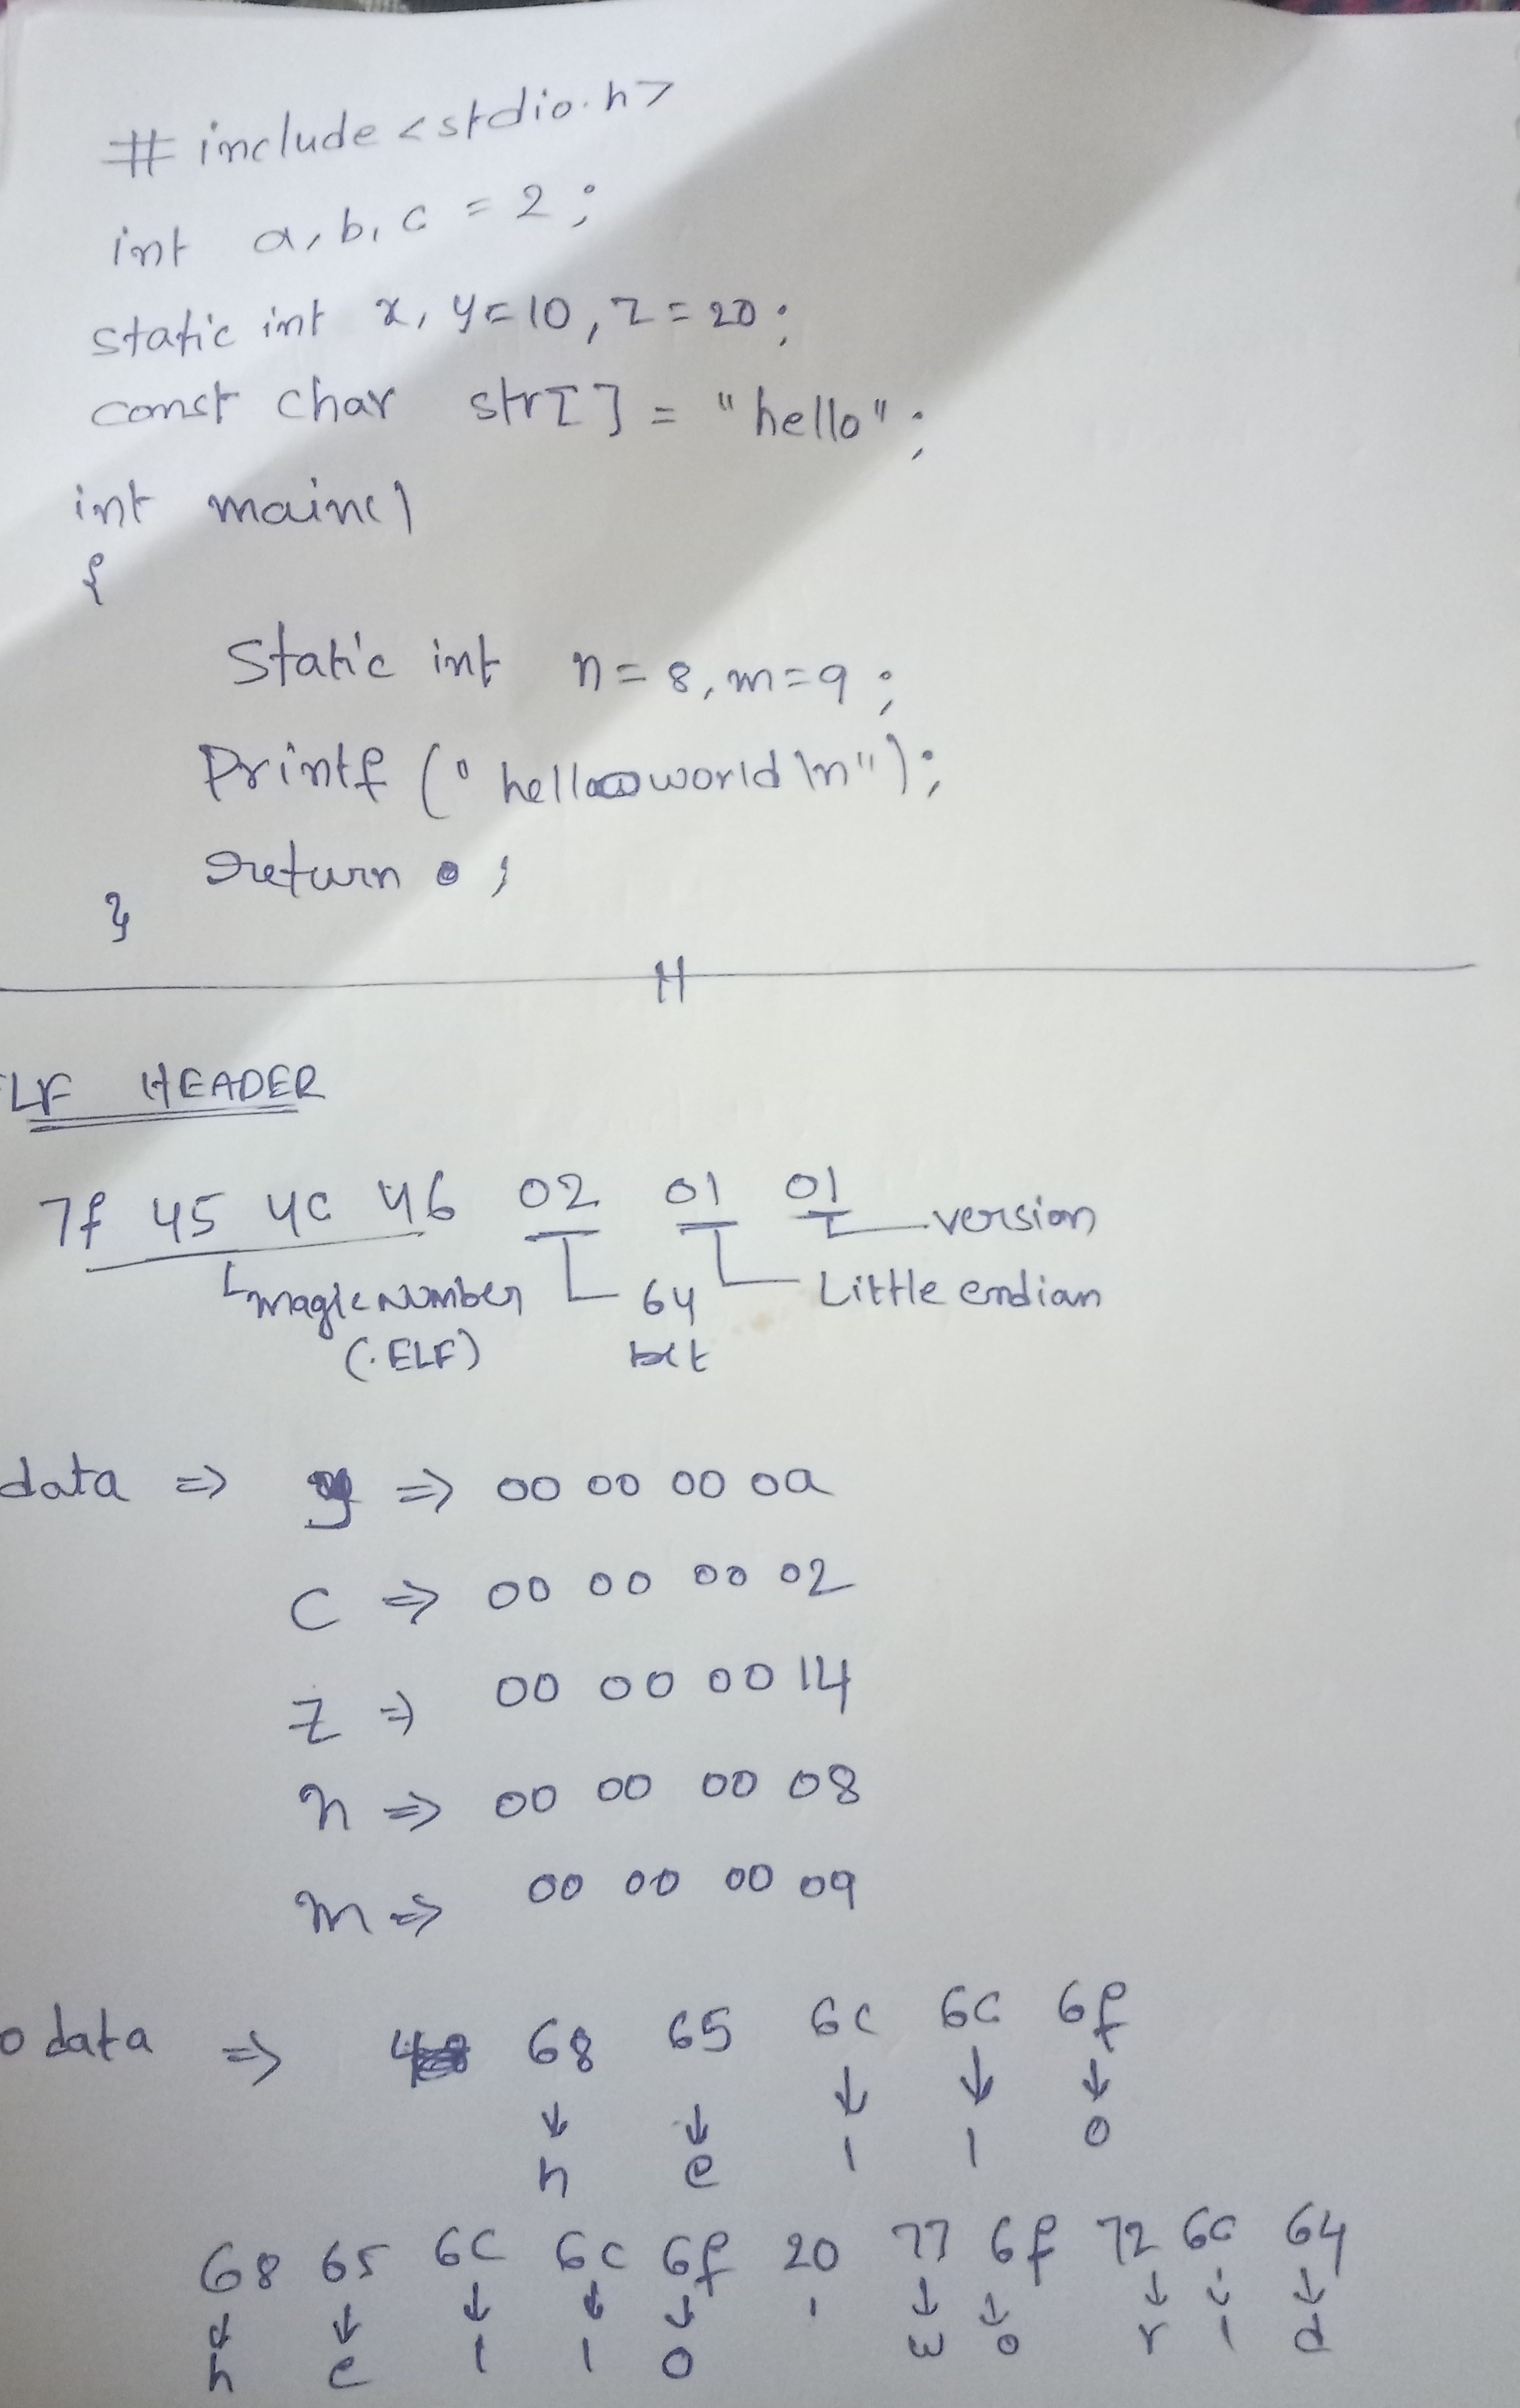 # include <stdio.h>
int a, b, c = 2;
static int x, y=10, z=20;
const char str[] = "hello";
int main()
{
static int n=8, m=9;
printf ("hello world \n");
return 0;
}
LF HEADER
7f 45 4c 46 02 01 01 version
magic number 64 Little endian
(.ELF) bit
data => y => 00 00 00 0a
c => 00 00 00 02
z => 00 00 00 14
n => 00 00 00 08
m => 00 00 00 09
o data => 68 65 6c 6c 6f
↓ ↓ ↓ ↓ ↓
h e l l o
68 65 6c 6c 6f 20 77 6f 72 6c 64
↓ ↓ ↓ ↓ ↓ ↓ ↓ ↓ ↓ ↓
h e l l o w o r l d